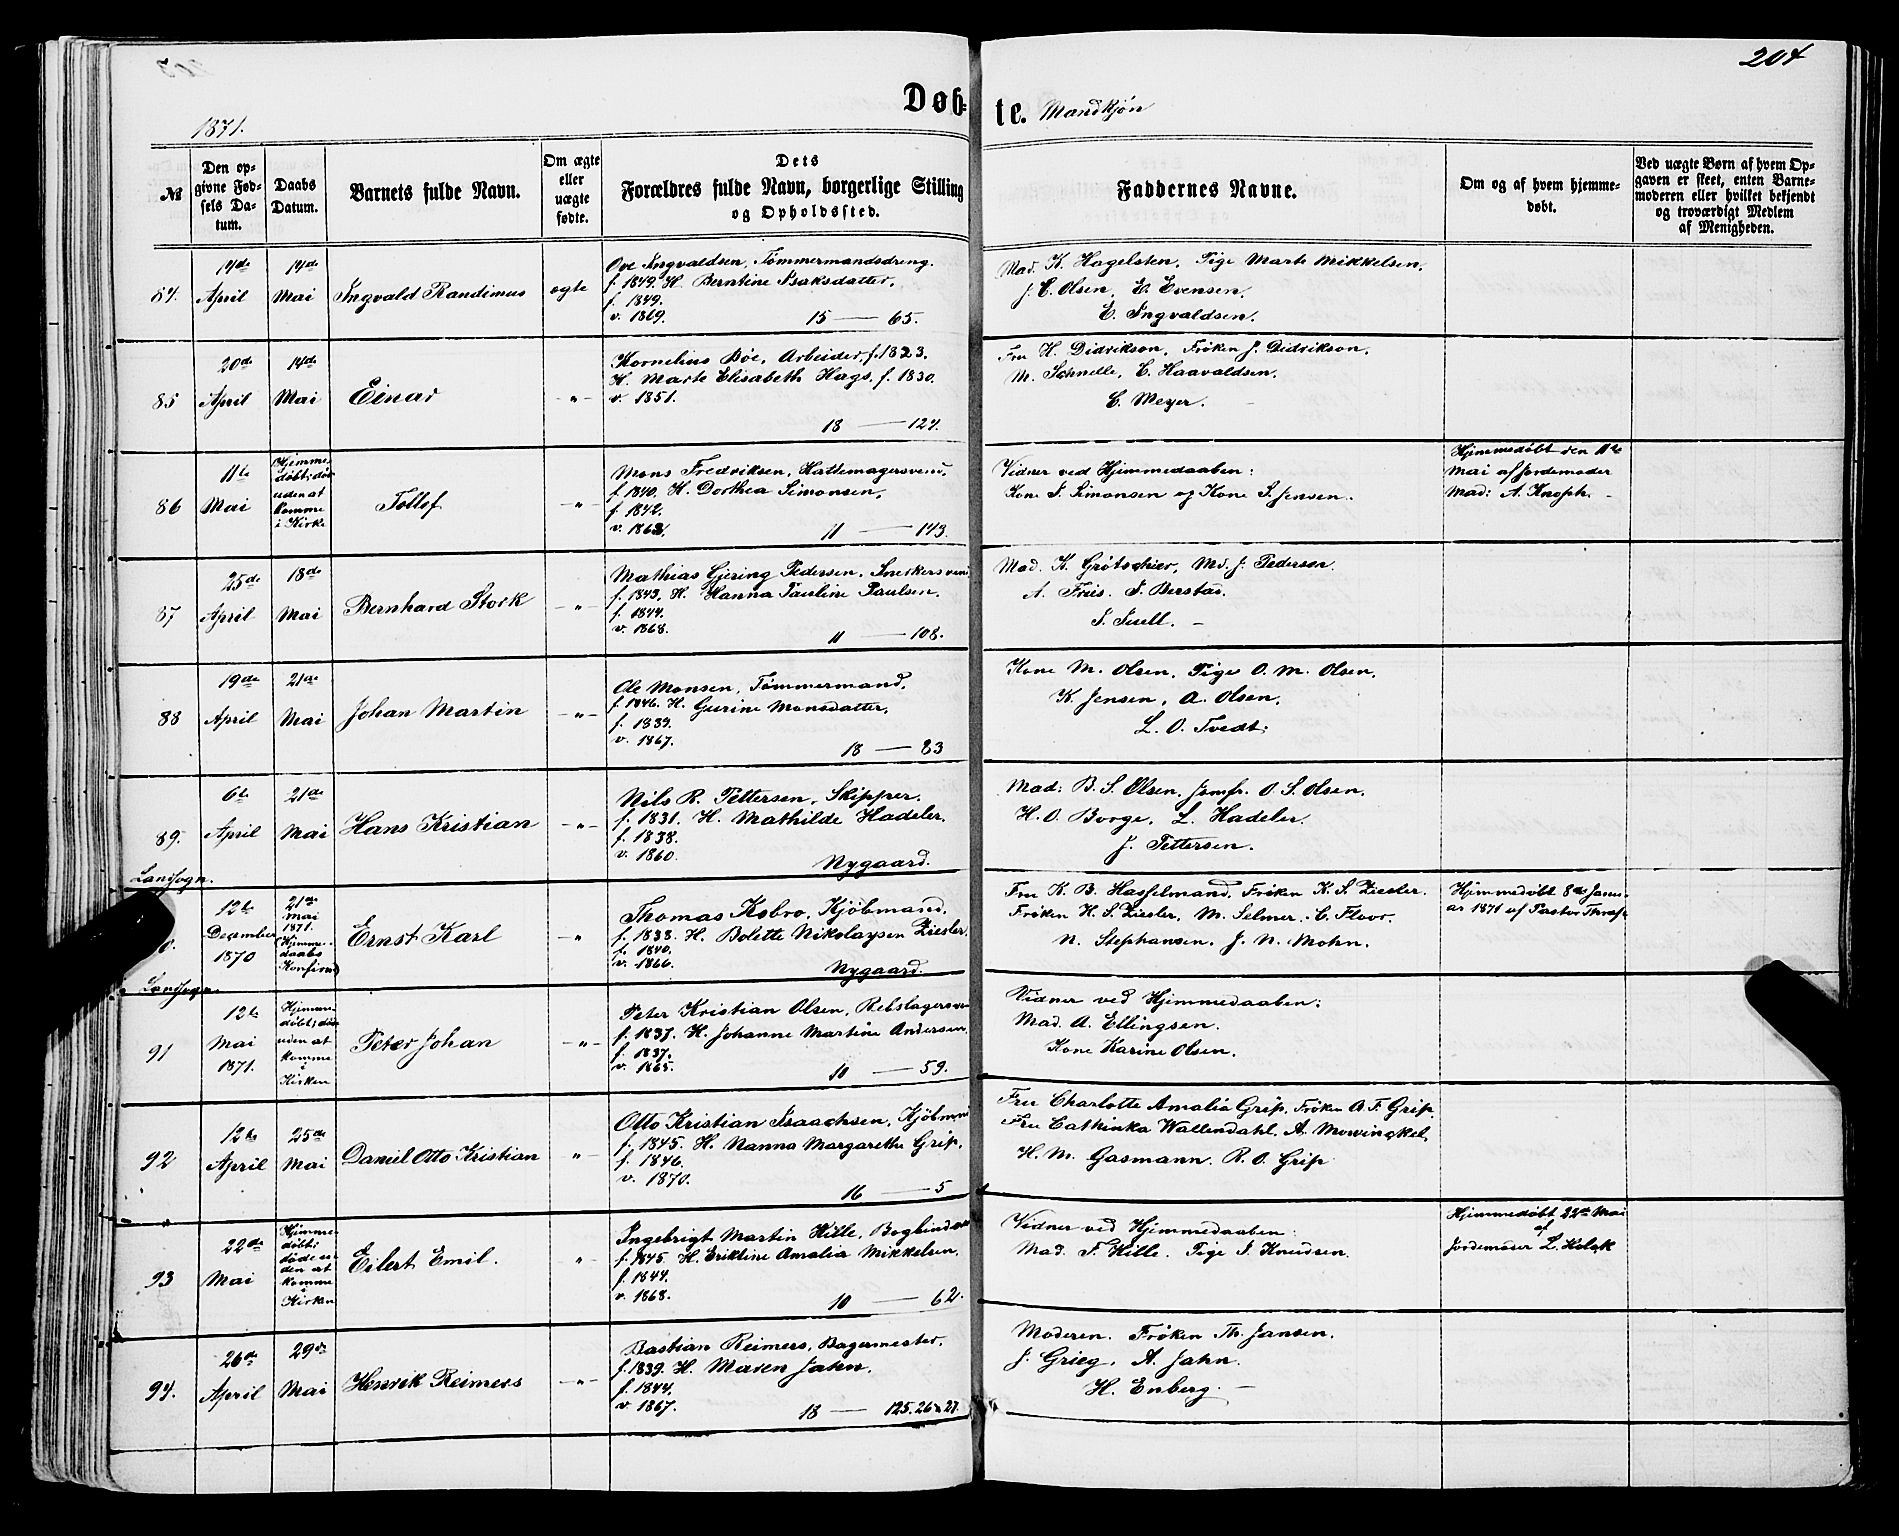 204
Døb-te. Mandkjøn
1871.
№
Den op-
givne Fød-
sels Da-
tum.
Daabs
Datum.
Barnets fulde Navn.
Om ægte
eller
uægte
fødte.
Dets
Forældres fulde Navn, borgerlige Stilling
og Opholdssted.
Faddernes Navne.
Om og af hvem hjemme-
døbt.
Ved uægte Børn af hvem Op-
gaven er skeet, enten Barne-
moderen eller hvilket bekjendt
og troværdigt Medlem
af Menigheden.
84.
14de
April
14de
Mai
Ingvald Randimus
ægte
Ove Ingvaldsen, Tømmermandsdreng.
f. 1849. H. Berntine Isaksdatter,
f. 1849.
v. 1869. 15 — 65.
Mad. K. Hagelsten, Pige Marte Mikkelsen,
J. C. Olsen, E. Evensen,
E. Ingvaldsen.
85
20de
April
14de
Mai
Einar
-"-
Kornelius Bøe, Arbeider, f. 1823.
H. Marte Elisabeth Hags, f. 1830.
v. 1851.
18 — 124.
Fru H. Didrikson, Frøken J. Didrikson,
M. Schnelle, C. Haavaldsen,
C. Meyer.
86
11te
Mai
Hjemme-
døbt; død
uden at
komme
i Kirke
Tollef
-"-
Mons Fredriksen, Hattemagersvend
f. 1840. H. Dorthea Simonsen,
f. 1842.
v. 1862. 11 — 143.
Vidner ved Hjemmedaaben:
Kone S. Simonsen og Kone S. Jensen.
Hjemmedøbt den 11te
Mai af Jordemoder
Mad: A. Knoph.
87
25de
April
18de
Mai
Bernhard Stock
-"-
Mathias Gjering Pedersen, Snedkersvend
f. 1843. H. Hanna Pauline Paulsen.
f. 1844.
v. 1868. 11 — 108.
Mad. K. Grötschier, Md. J. Pederson
A. Friis. S. Berstad.
88
19de
April
21de
Mai
Johan Martin
-"-
Ole Monsen, Tømmermand,
f. 1846. H. Gurine Monsdatter,
f. 1839.
v. 1867. 18 — 83
Kone M. Olsen, Pige O. M. Olsen,
K. Jensen, A. Olsen,
L. O. Tvedt.
89.
6te
April
21de
Mai
Hans Kristian
-"-
Nils R. Pettersen, Skipper.
f. 1831. H. Mathilde Hadeler,
f. 1838.
v. 1860. Nygaard.
Mad: B. S. Olsen, Jomfr. O. S. Olsen,
H. O. Borge, L. Hadeler.
J. Pettersen.
Landsogn.
12te
December
1870
21de
Mai
1871.
Hjemme-
daabs
Konfirmd
Ernst Karl
"
Thomas Kobro, Kjøbmand.
f. 1838. H. Bolette Nikolaysen Ziesler.
f. 1840.
v. 1866. Nygaard.
Fru K. B. Hasselmand, Frøken K. S. Ziesler.
Frøken H. S. Ziesler, M. Selmer. C. Floor.
N. Stephansen. J. N. Mohn.
Hjemmedøbt 8de Janu-
ar 1871 af Pastor
Landsogn.
91
12te
Mai
1871.
Hjemme-
døbt; død
uden at
komme
i
Kirken
Peter Johan
-"-
Peter Kristian Olsen, Rebslagersvend
f. 1837. H. Johanne Martine Andersen,
f. 1837.
v. 1865. 10 — 59.
Vidner ved Hjemmedaaben:
Mad. A. Ellingsen.
Kone Karine Olsen.
92
12te
April
25de
Mai
Daniel Otto Kristian
"
Otto Kristian Isaachsen, Kjøbmand
f. 1845. H. Nanna Margarethe Grip,
f. 1846.
v. 1870.
16 — 5
Fru Charlotte Amalia Grip, Frøken A. F. Grip,
Fru Cathinka Wallendahl, A. Mowinckel,
H. M. Gasmann. R. O. Grip
93
22de
Mai
Hjemme-
døbt;
døde u-
den at
komme
i
Kirken
Eilert Emil.
"
Ingebrigt Martin Hille, Bogbinder
f. 1845. H. Eriktine Amalia Mikkelsen,
f. 1844.
v. 1868. 10 — 62.
Vidner ved Hjemmedaaben:
Mad. F. Hille. Pige S. Knudsen.
Hjemmedøbt 22de Mai
af
Jordemoder L. Holck
94.
26de
April
29de
Mai
Henrik Reimers
-"-
Bastian Reimers, Bagermester,
f. 1839. H. Maren Jahn.
f. 1844.
v. 1867. 18 — 125.26 & 27.
Moderen. Frøken Th. Jansen.
J. Grieg. A. Jahn.
H. Enberg.